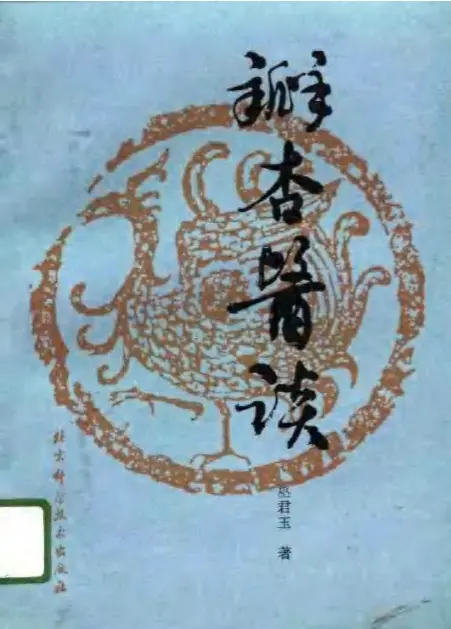 瓣杏醫谈
巫君玉 著
北京科学技术出版社